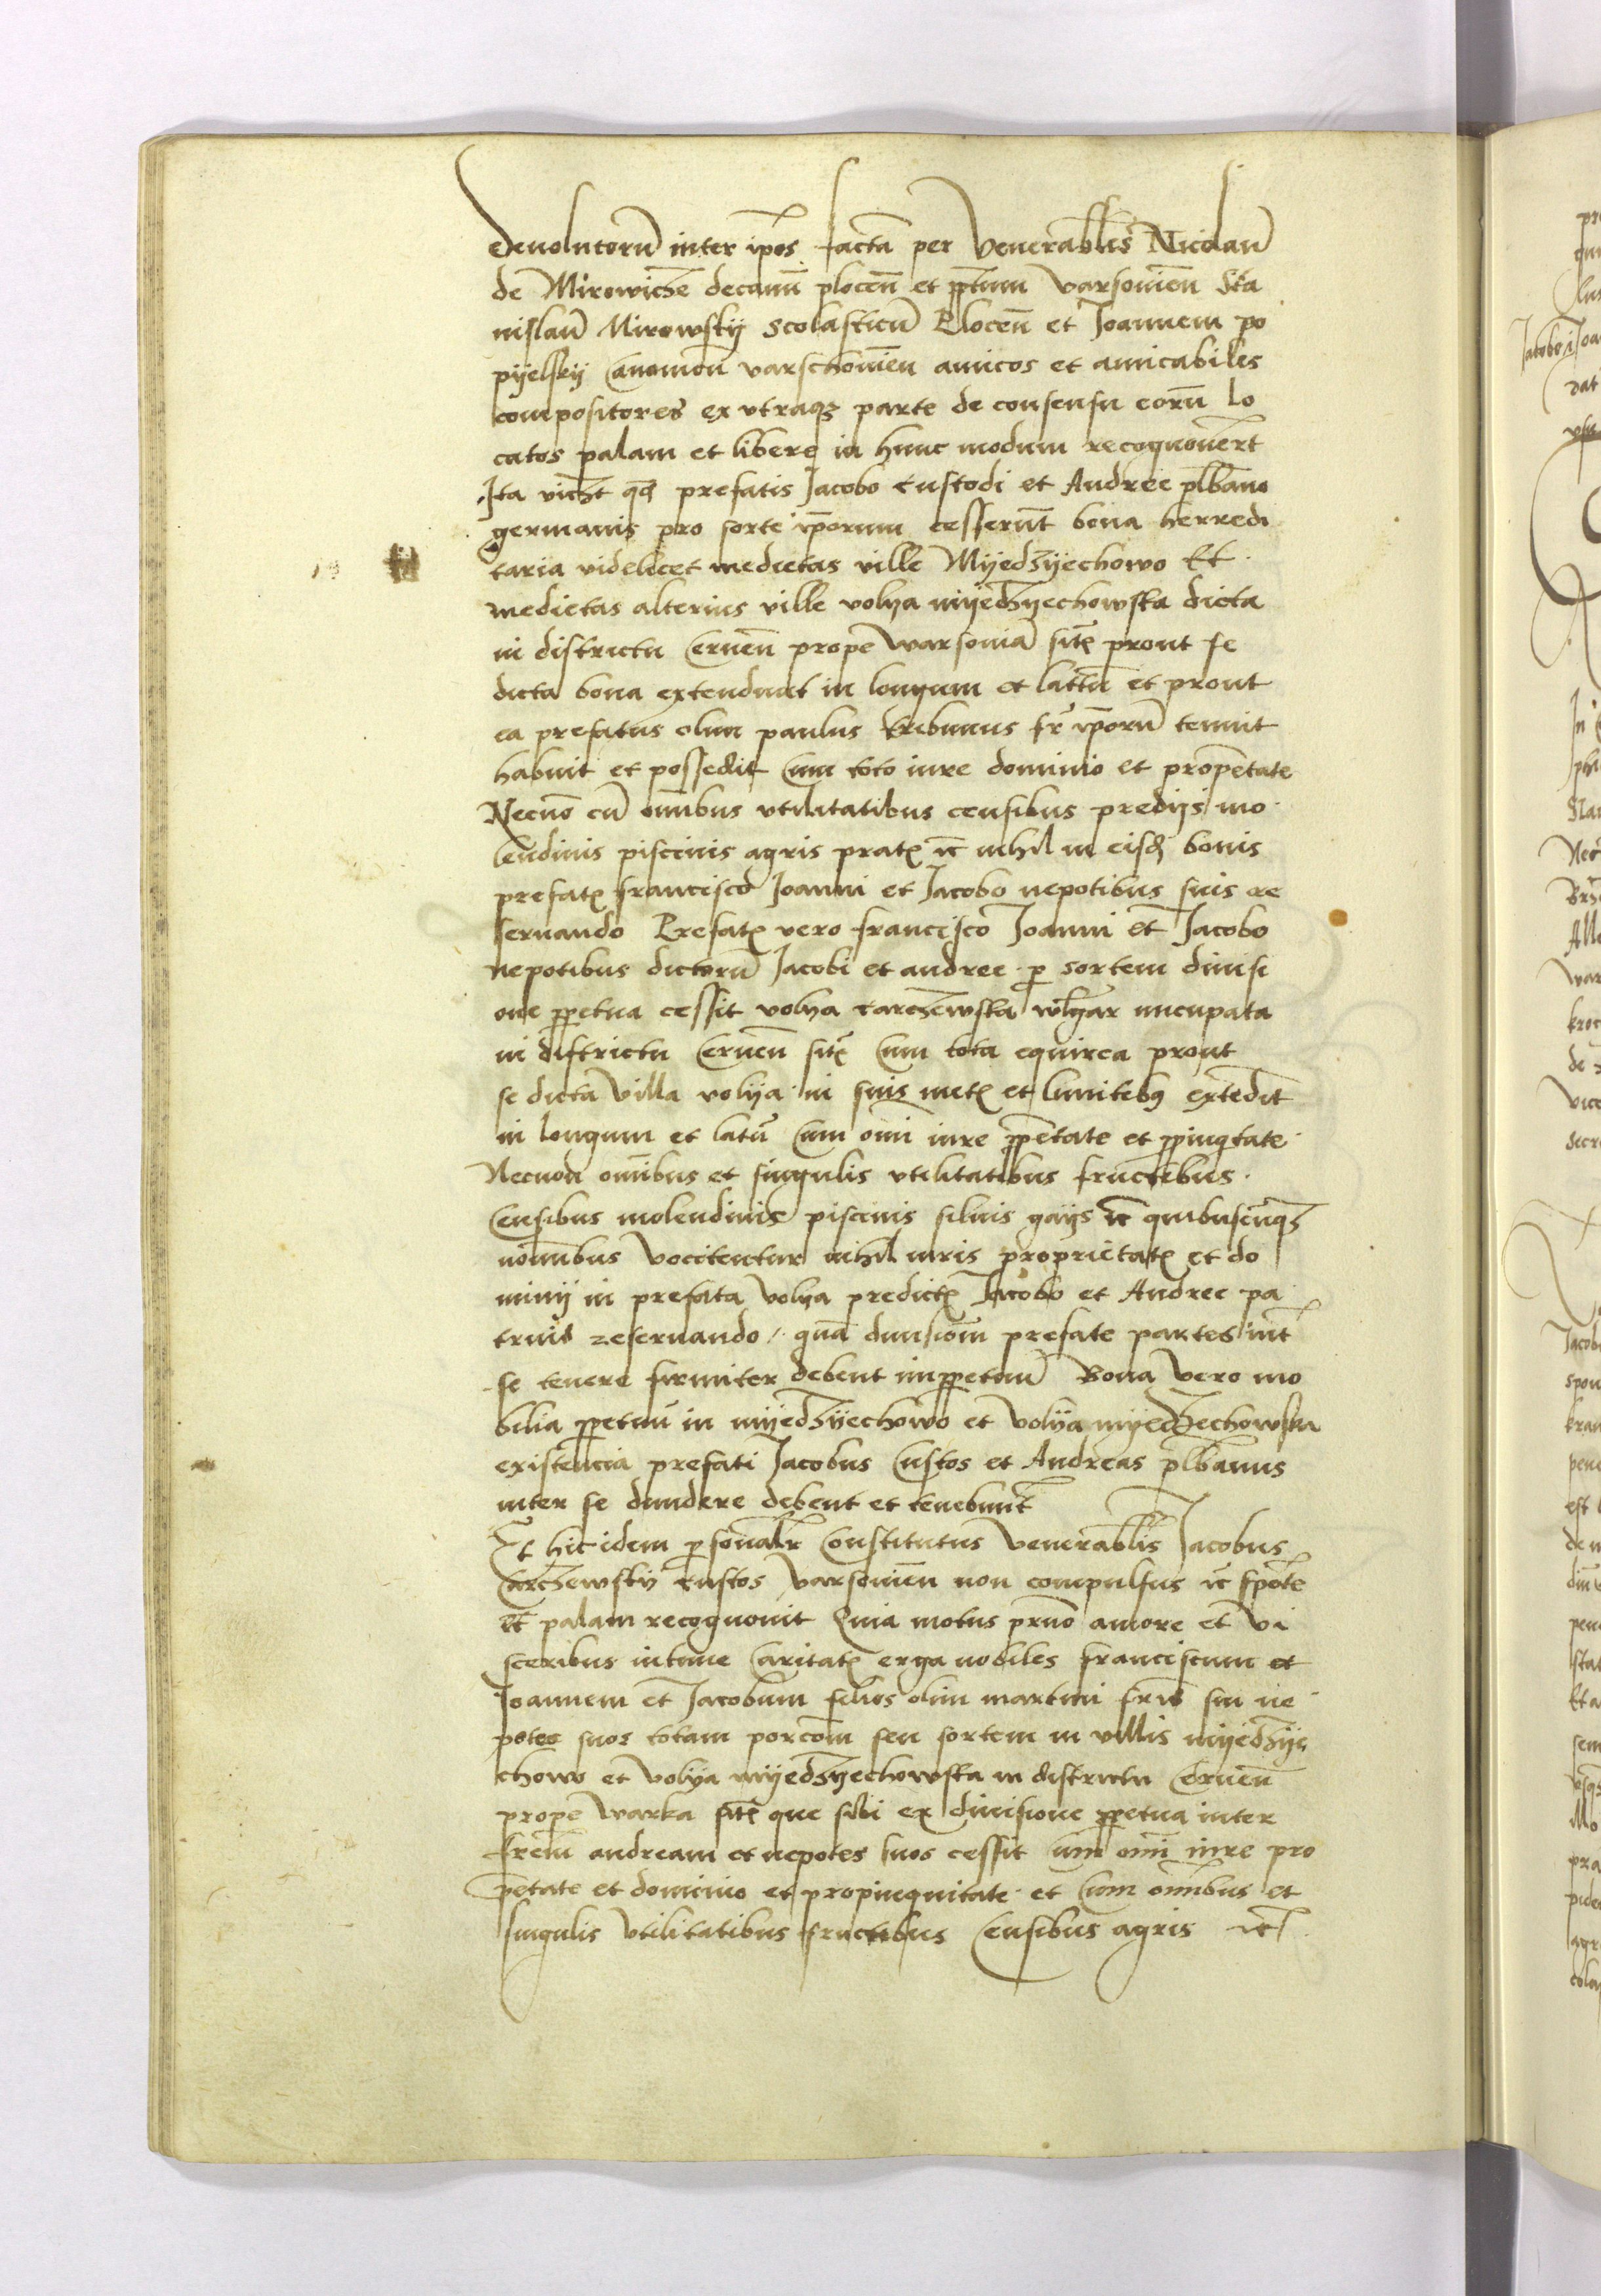 devolutorū inter ip̄os facta per Venerabiles Nicolaū
de Mirowicze decanū plocen̄ et p̄ptum varsovien̄ Sta
nislaū Mirowskÿ Scolasticū Plocen̄ et Joannem po
pÿelskÿ Canonicū varschovien̄ amicos et amicabiles
compositores ex utraqȝ parte de consensu eorū lo
catos palam et libere in hunc modum recognovert̄
Ita vicȝt qd̄ prefatis Jacobo Custodi et Andree plb̄ano
germanis pro sorte ip̄orum cesserūt bona herredi
taria videlicet medietas ville Mÿedzÿechowo Et
medietas alterius ville volya mÿedzÿechowska dicta
in districtu Cernen̄ prope Warsoviā sit̄ prout se
dicta bona extendunt in longum et lattū et prout
ea prefatus olim paulus tribunus fr̄ ip̄orū tenuit
habuit et possedit Cum toto iure dominio et prop̄etate
Necnō cū om̄ibus utilitatibus censibus predÿs mo
lendinis piscinis agris prat̄ ꝛc nihil in eisd̄ bonis
prefat̄ francisco Joanni et Jacobo nepotibus suis re
servando Prefat̄ vero francisco Joanni et Jacobo
nepotibus dictorū Jacobi et andree p̱ sortem divisi
one p̱petua cessit volya tarczewska wlgar̄ nncupata
in districtu Cernen̄ sit̄ Cum tota equirea prout
se dicta villa volÿa in suis met̄ et limitebꝯ extēdit
in longum et latū Cum om̄i iure p̱p̄etate et p̱pinq̄tate
Necnon om̄ibus et singulis utilitatibus fructibus
Censibus molendinis piscinis silvis gaÿs ꝛc quibuscūqȝ
noīnibus vocitentur nihil iuris proprietat̄ et do
minÿ in prefata volya predict̄ Jacobo et Andree pa
truis reservando / quā divisionē prefate partes int̄
se tenere firmiter debent imp̱petuū Bona vero mo
bilia p̱petuū in mÿedzÿechowo et volÿa mÿedzechowska
existencia prefati Jacobus Custos et Andreas plb̄anus
inter se dividere debent et tenebunt̄
Et hic idem p̱sonalr̄ Constitutus Venerabilis Jacobus
tarczewskÿ Custos Varsovien̄ non compulsus ꝛc sponte
et palam recognovit Quia motus prn̄o amore et vi
sceribus intime Caritat̄ erga nobiles franciscum et
Joannem et Jacobum filios olim martini fris̄ sui ne
potes suos totam porcōem seu sortem in villis mÿedzÿe
chowo et volÿa mÿedzÿechowska in districtu Cernen̄
prope Warka sit̄ que sibi ex divisione p̱petua inter
frēm andream et nepotes suos cessit cum om̄i iure pro
p̄etate et dominio et propinquitate et Cum om̄ibus et
singulis utilitatibus fructibus Censibus agris ꝛc